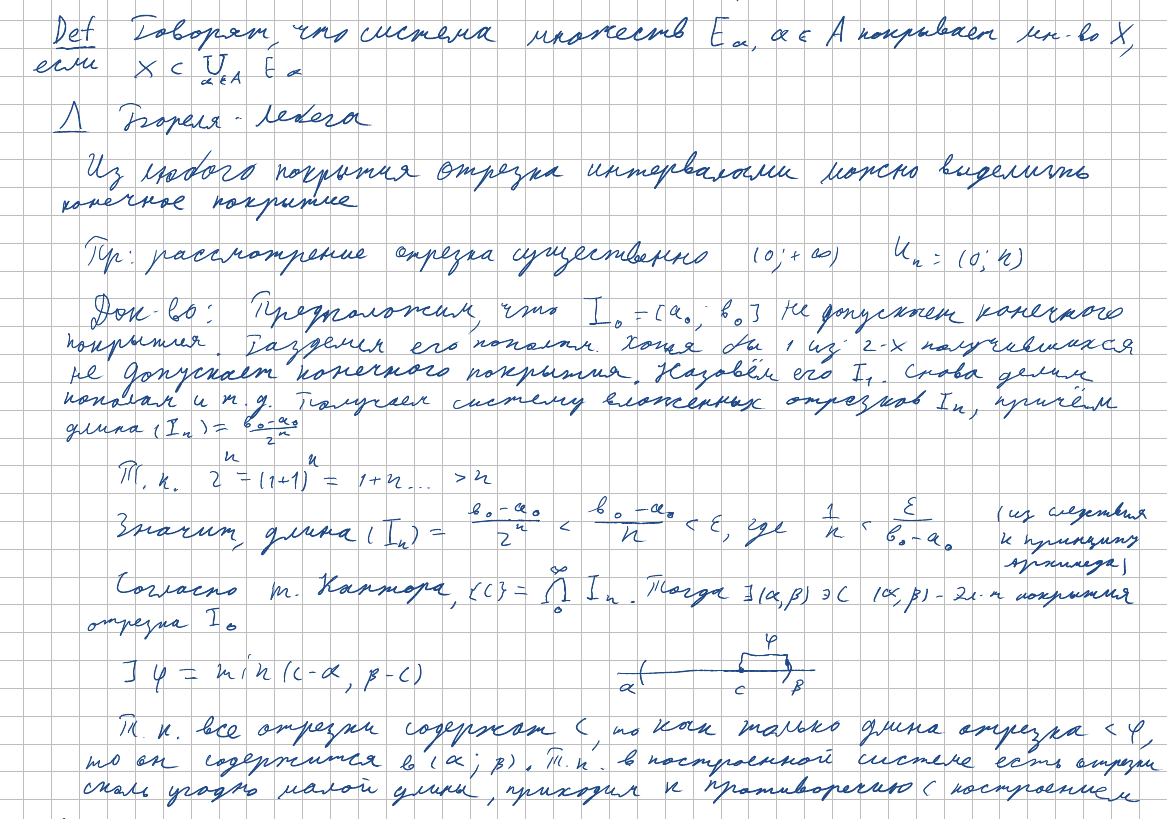 Def Говорят, что система множеств E_α, α ∈ A покрывает мн-во X,
если X ⊂ ⋃_{α∈A} E_α
Л Бореля - Лебега
Из любого покрытия отрезка интервалами можно выделить
конечное покрытие
Пр: рассмотрение отрезка существенно (0;+∞) U_n = (0; n)
Док-во: Предположим, что I_0 = [a_0; b_0] не допускает конечного
покрытия. Разделим его пополам. Хотя бы 1 из 2-х получившихся
не допускает конечного покрытия. Назовём его I_1. Снова делим
пополам и т.д. Получаем систему вложенных отрезков I_n, причём
длина (I_n) = (b_0-a_0)/2^n
Т.к. 2^n = (1+1)^n = 1+n... > n
Значит, длина (I_n) = (b_0-a_0)/2^n < (b_0-a_0)/n < ε, где 1/n < ε/(b_0-a_0) (из следствия
к принципу
Архимеда)
Согласно т. Кантора, {c} = ⋂_0^∞ I_n. Тогда ∃(α,β) ∋ c (α,β) - эл-т покрытия
отрезка I_0
∃ φ = min(c-α, β-c)
φ
α c β
Т.к. все отрезки содержат c, то как только длина отрезка < φ,
то он содержится в (α; β). Т.к. в построенной системе есть отрезки
сколь угодно малой длины, приходим к противоречию с построением